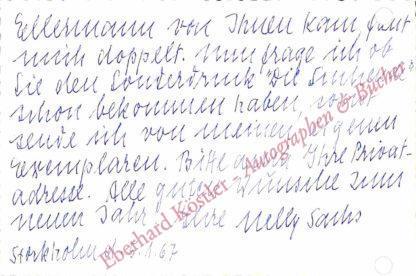 Ellermann von Ihnen kam freut
mich doppelt. Nun frage ich ob
Sie den Sonderdruck "Die Suchende"
schon bekommen haben, sonst
sende ich von meinen eigenen
Exemplaren. Bitte dann Ihre Privat-
adresse. Alle guten Wünsche zum
neuen Jahr Ihre Nelly Sachs
Stockholm 1.67
Eberhard Köstler - Autographen & Bücher